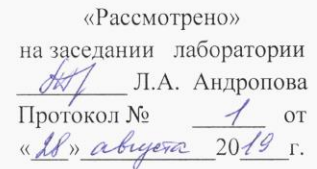 «Рассмотрено»
на заседании лаборатории
Л.А. Андропова
Протокол № 1 от
«28» августа 2019г.